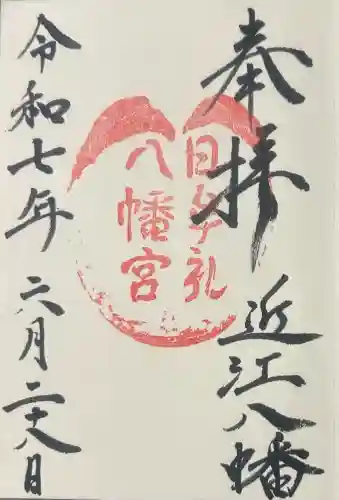 奉拝
近江八幡
日牟礼
八幡宮
令和七年
六月二十八日